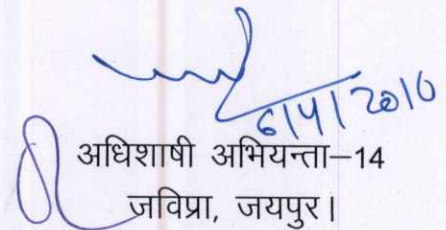 6/4/2010
अधिशाषी अभियन्ता–14
जविप्रा, जयपुर।